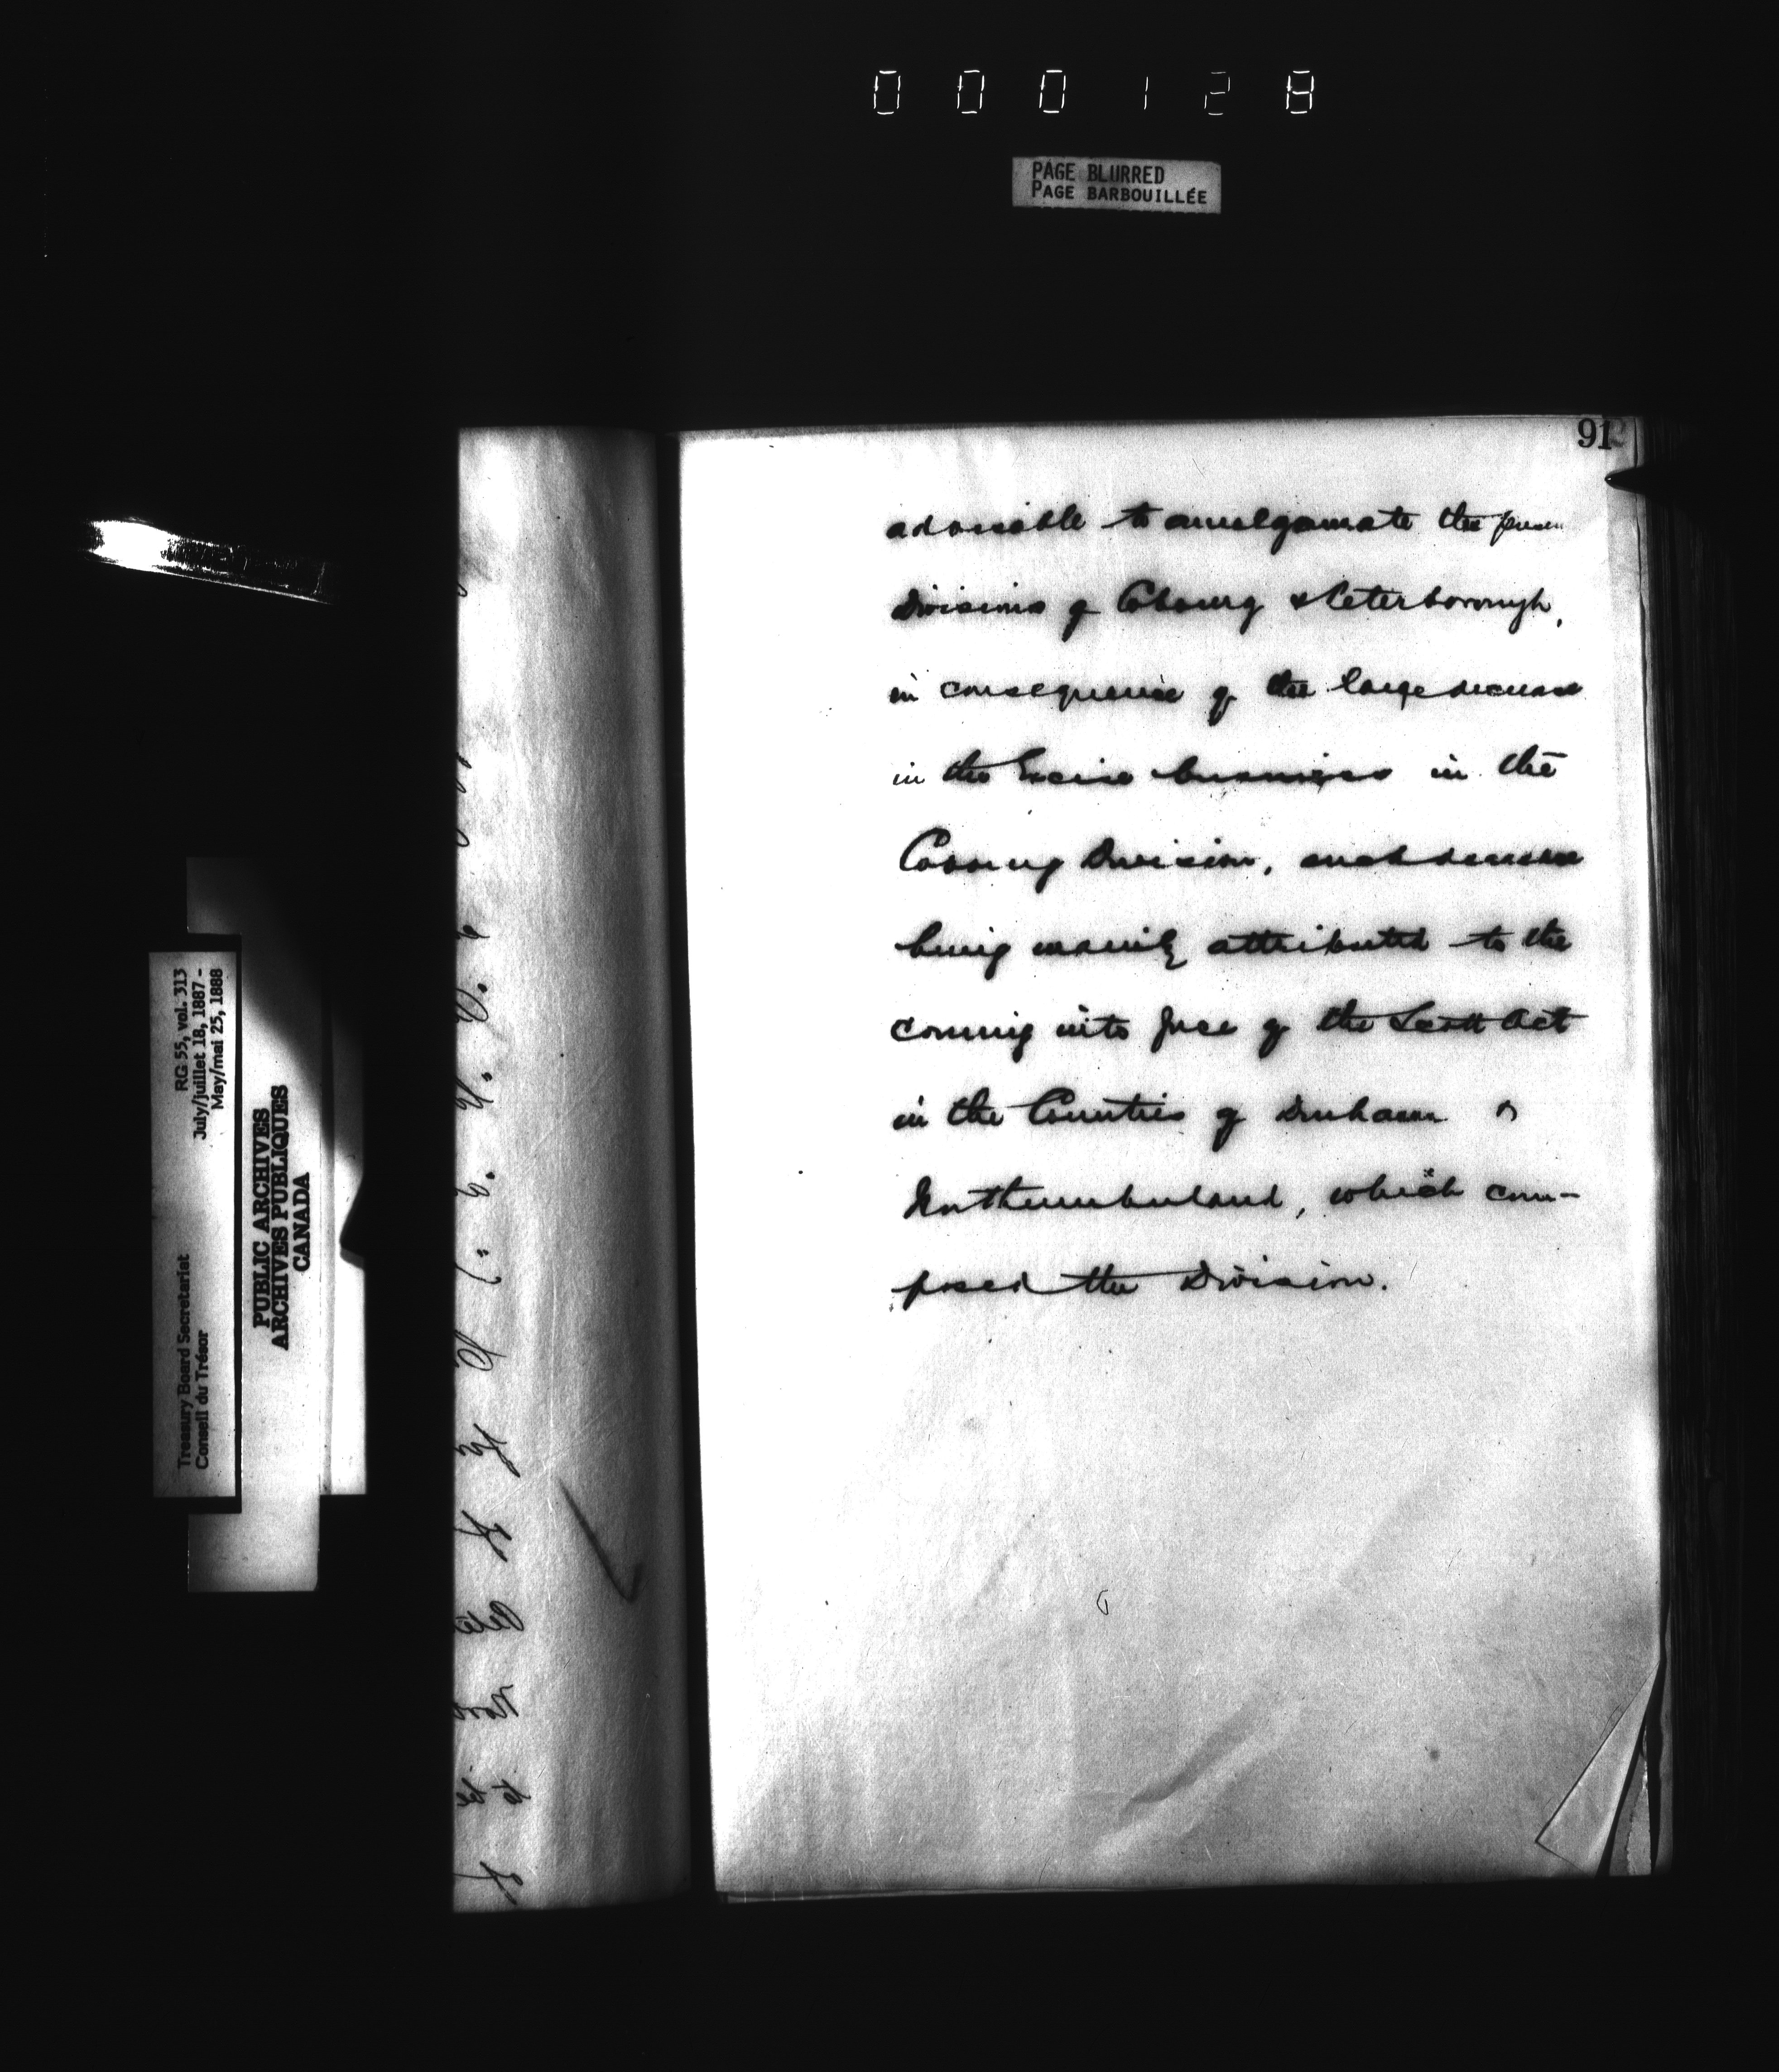 000128
PAGE BLURRED
PAGE BARBOUILLÉE
91
advisable to amalgamate the present
Divisions of Cobourg & Peterborough,
in consequence of the large decrease
in the Excise business in the
Cobourg Division, such decrease
being mainly attributed to the
coming into force of the Scott Act
in the Counties of Durham &
Northumberland, which com-
posed the Division.
RG 55, vol. 313
July/juillet 18, 1887 -
May/mai 25, 1888
Treasury Board Secretariat
Conseil du Trésor
PUBLIC ARCHIVES
ARCHIVES PUBLIQUES
CANADA